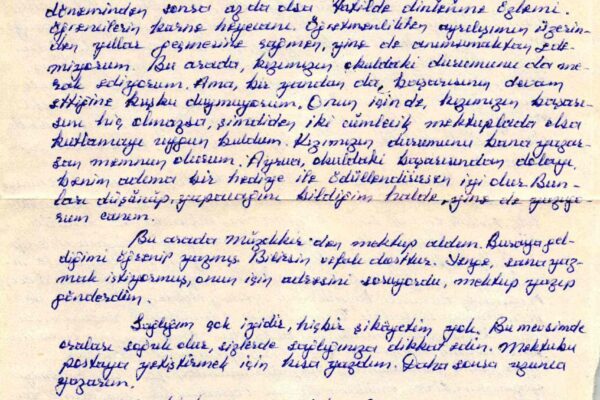 döneminden sonra az da olsa tatilde dinlenme özlemi.
öğrencilerin karne heyecanı. Öğretmenlikten ayrılışımın üzerin-
den yıllar geçmesine rağmen, yine de anımsamaktan ede-
miyorum. Bu arada, kızımızın okuldaki durumunu da me-
rak ediyorum. Ama, bir yandan da, başarısının devam
ettiğine kuşku duymuyorum. Onun için de, kızımızın başarı-
sını hiç olmazsa, şimdiden iki cümlecik mektuplada olsa
kutlamayı uygun buldum. Kızımızın durumunu bana yazar-
san memnun olurum. Ayrıca, okuldaki başarısından dolayı
benim adıma bir hediye ile ödüllendirirsen iyi olur. Bun-
ları düşünüp, yapacağını bildiğim halde, yine de yazıyo-
rum canım.
Bu arada Müzekkir'den mektup aldım. Buraya gel-
diğimi öğrenip yazmış. Bilirsin vefalı dosttur. Yenge, sana yaz-
mak istiyormuş, onun için adresini soruyordu, mektup yazıp
gönderdim.
Sağlığım çok iyidir, hiçbir şikâyetim yok. Bu mevsimde
oraları soğuk olur, sizlerde sağlığınıza dikkat edin. Mektubu
postaya yetiştirmek için kısa yazdım. Daha sonra uzunca
yazarım.